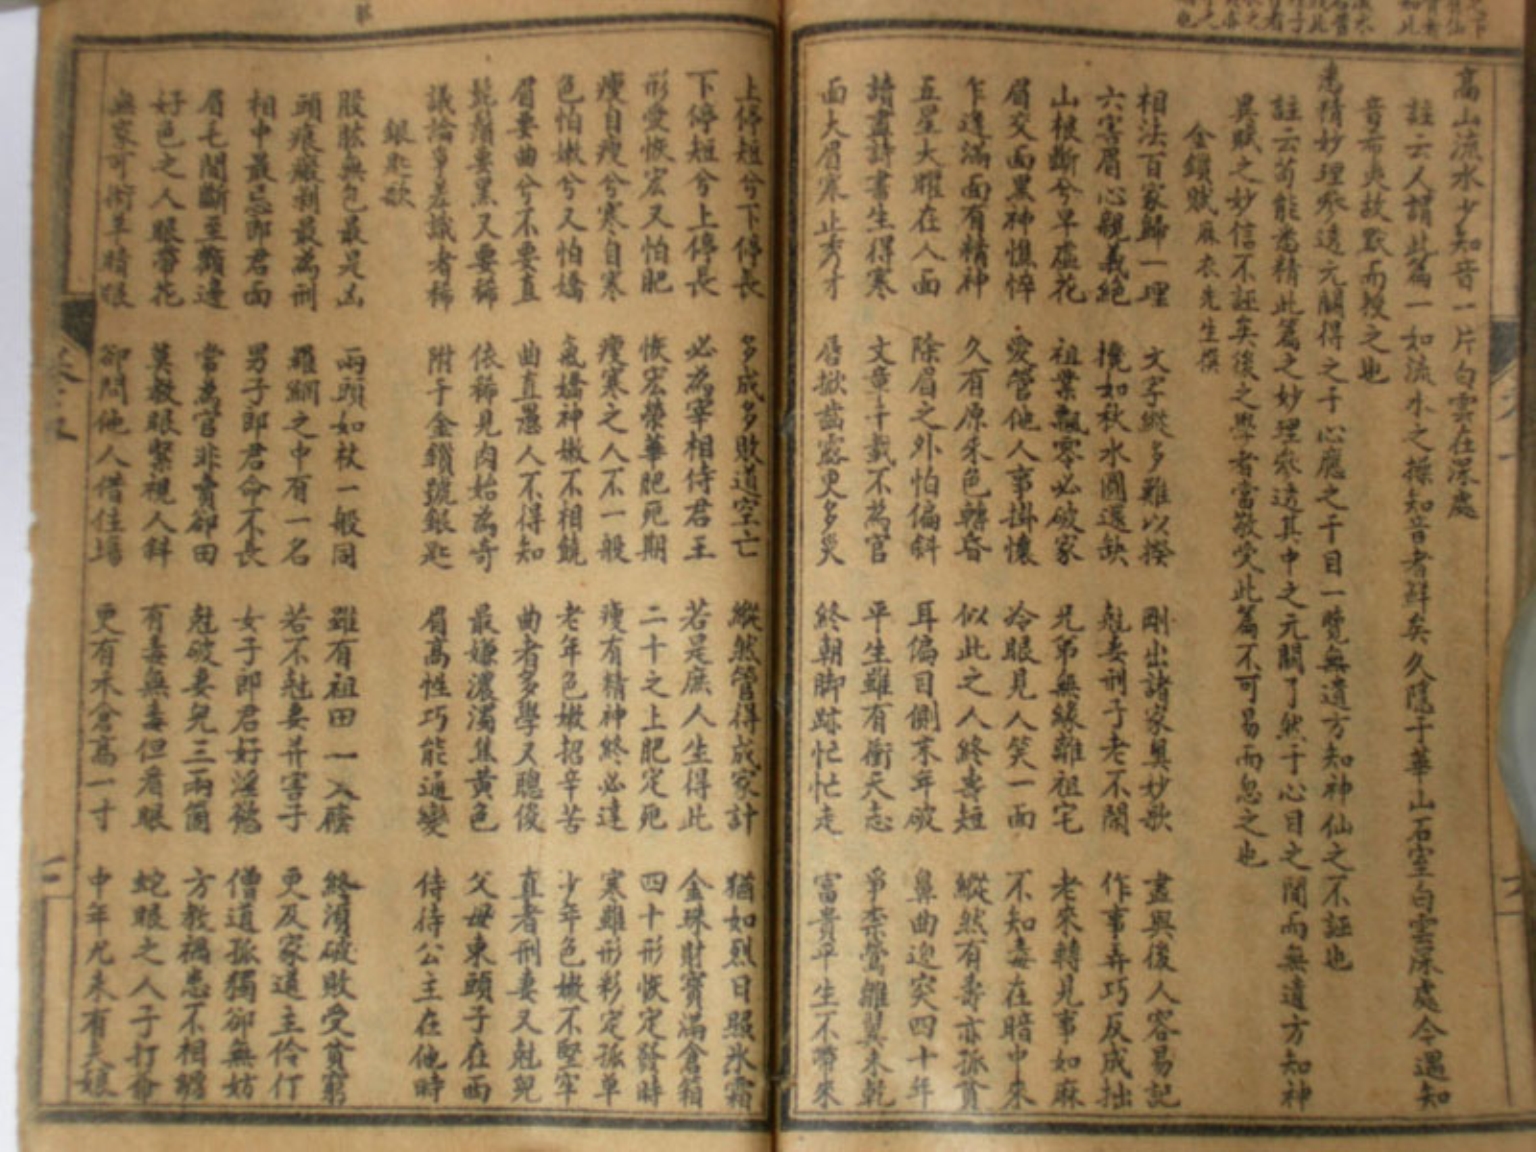 高山流水少知音一片白雲在深處
註云人謂此篇一如流水之操知音者鮮矣久隱于華山石室白雲深處今遇知
音希夷故默而授之也
悉精妙理參透元關得之于心應之于目一覽無遺方知神仙之不誣也
註云苟能悉精此篇之妙理參透其中之元關了然于心目之間而無遺方知神
異賦之妙信不誣矣後之學者當敬受此篇不可易而忽之也
金鎖賦 麻衣先生撰
相法百家歸一理 文字縱多難以揆 剛出諸家奧妙歌 盡與後人容易記
六害眉心親義絕 挽如秋水圓還缺 尅妻刑子老不閒 作事弄巧反成拙
山根斷兮早虛花 祖業飄零必破家 兄弟無緣離祖宅 老來轉見事如麻
眉交面黑神憔悴 愛管他人事掛懷 冷眼見人笑一面 不知毒在暗中來
乍逢滿面有精神 久有原來色轉昏 似此之人終壽短 縱然有壽亦孤貧
五星六曜在人面 除眉之外怕偏斜 耳偏目側末年破 鼻曲迎突四十年
讀盡詩書生得寒 文章千載不為官 平生雖有衝天志 爭奈鶯雛翼未乾
面大眉寒止秀才 唇掀齒露更多災 終朝脚跡忙忙走 富貴平生不帶來
上停短兮下停長 多成多敗道空亡 縱然管得成家計 猶如烈日照氷霜
下停短兮上停長 必為宰相侍君王 若是庶人生得此 金珠財寶滿倉箱
形愛恢宏又怕肥 恢宏榮華肥死期 二十之上肥定死 四十形恢定發時
瘦自瘦兮寒自寒 瘦寒之人不一般 瘦有精神終必達 寒雖形彩定孤單
色怕嫩兮又怕嬌 氣嬌神嫩不相饒 老年色嫩招辛苦 少年色嫩不堅牢
眉要曲兮不要直 曲直愚人不得知 曲者多學又聰俊 直者刑妻又尅兒
髭鬚要黑又要稀 依稀見肉始為奇 最嫌濃濁焦黃色 父母東頭子在西
議論爭差識者稀 附于金鎖號銀匙 眉高性巧能通變 侍待公王在他時
銀匙歌
股肱無包最是凶 兩頭如杖一般同 雖有祖田一入廕 終須破敗受貧窮
頭痕瘢剝最為刑 羅網之中有一名 若不尅妻并害子 更反家道主伶仃
相中最忌郎君面 男子郎君命不長 女子郎君好淫慾 僧道孤獨卻無妨
眉毛間斷至顴邊 當為官非賣卻田 尅破妻兒三兩箇 方教禍患不相纏
好色之人眼帶花 莫教眼緊視人斜 有毒無毒但看眼 蛇眼之人子打爺
無家可 羊睛眼 卻問他人借住場 更有禾倉高一寸 中年尤未有夫娘